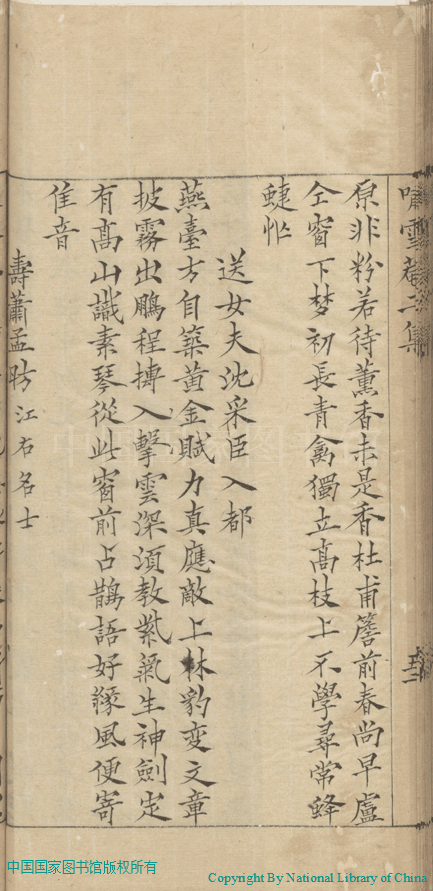 嘯雪菴二集
原非粉若待薰香未是香杜甫簷前春尚早盧
仝窗下梦初長青禽獨立高枝上不學尋常蜂
蜨忙
送女夫沈采臣入都
燕臺方自築黃金賦力真應敵上林豹变文章
披霧出鵬程摶入擊雲深須教紫氣生神劍定
有高山識素琴從此窗前占鵲語好緣風便寄
隹音
壽蕭孟昉江右名士
中国国家图书馆版权所有
Copyright By National Library of China